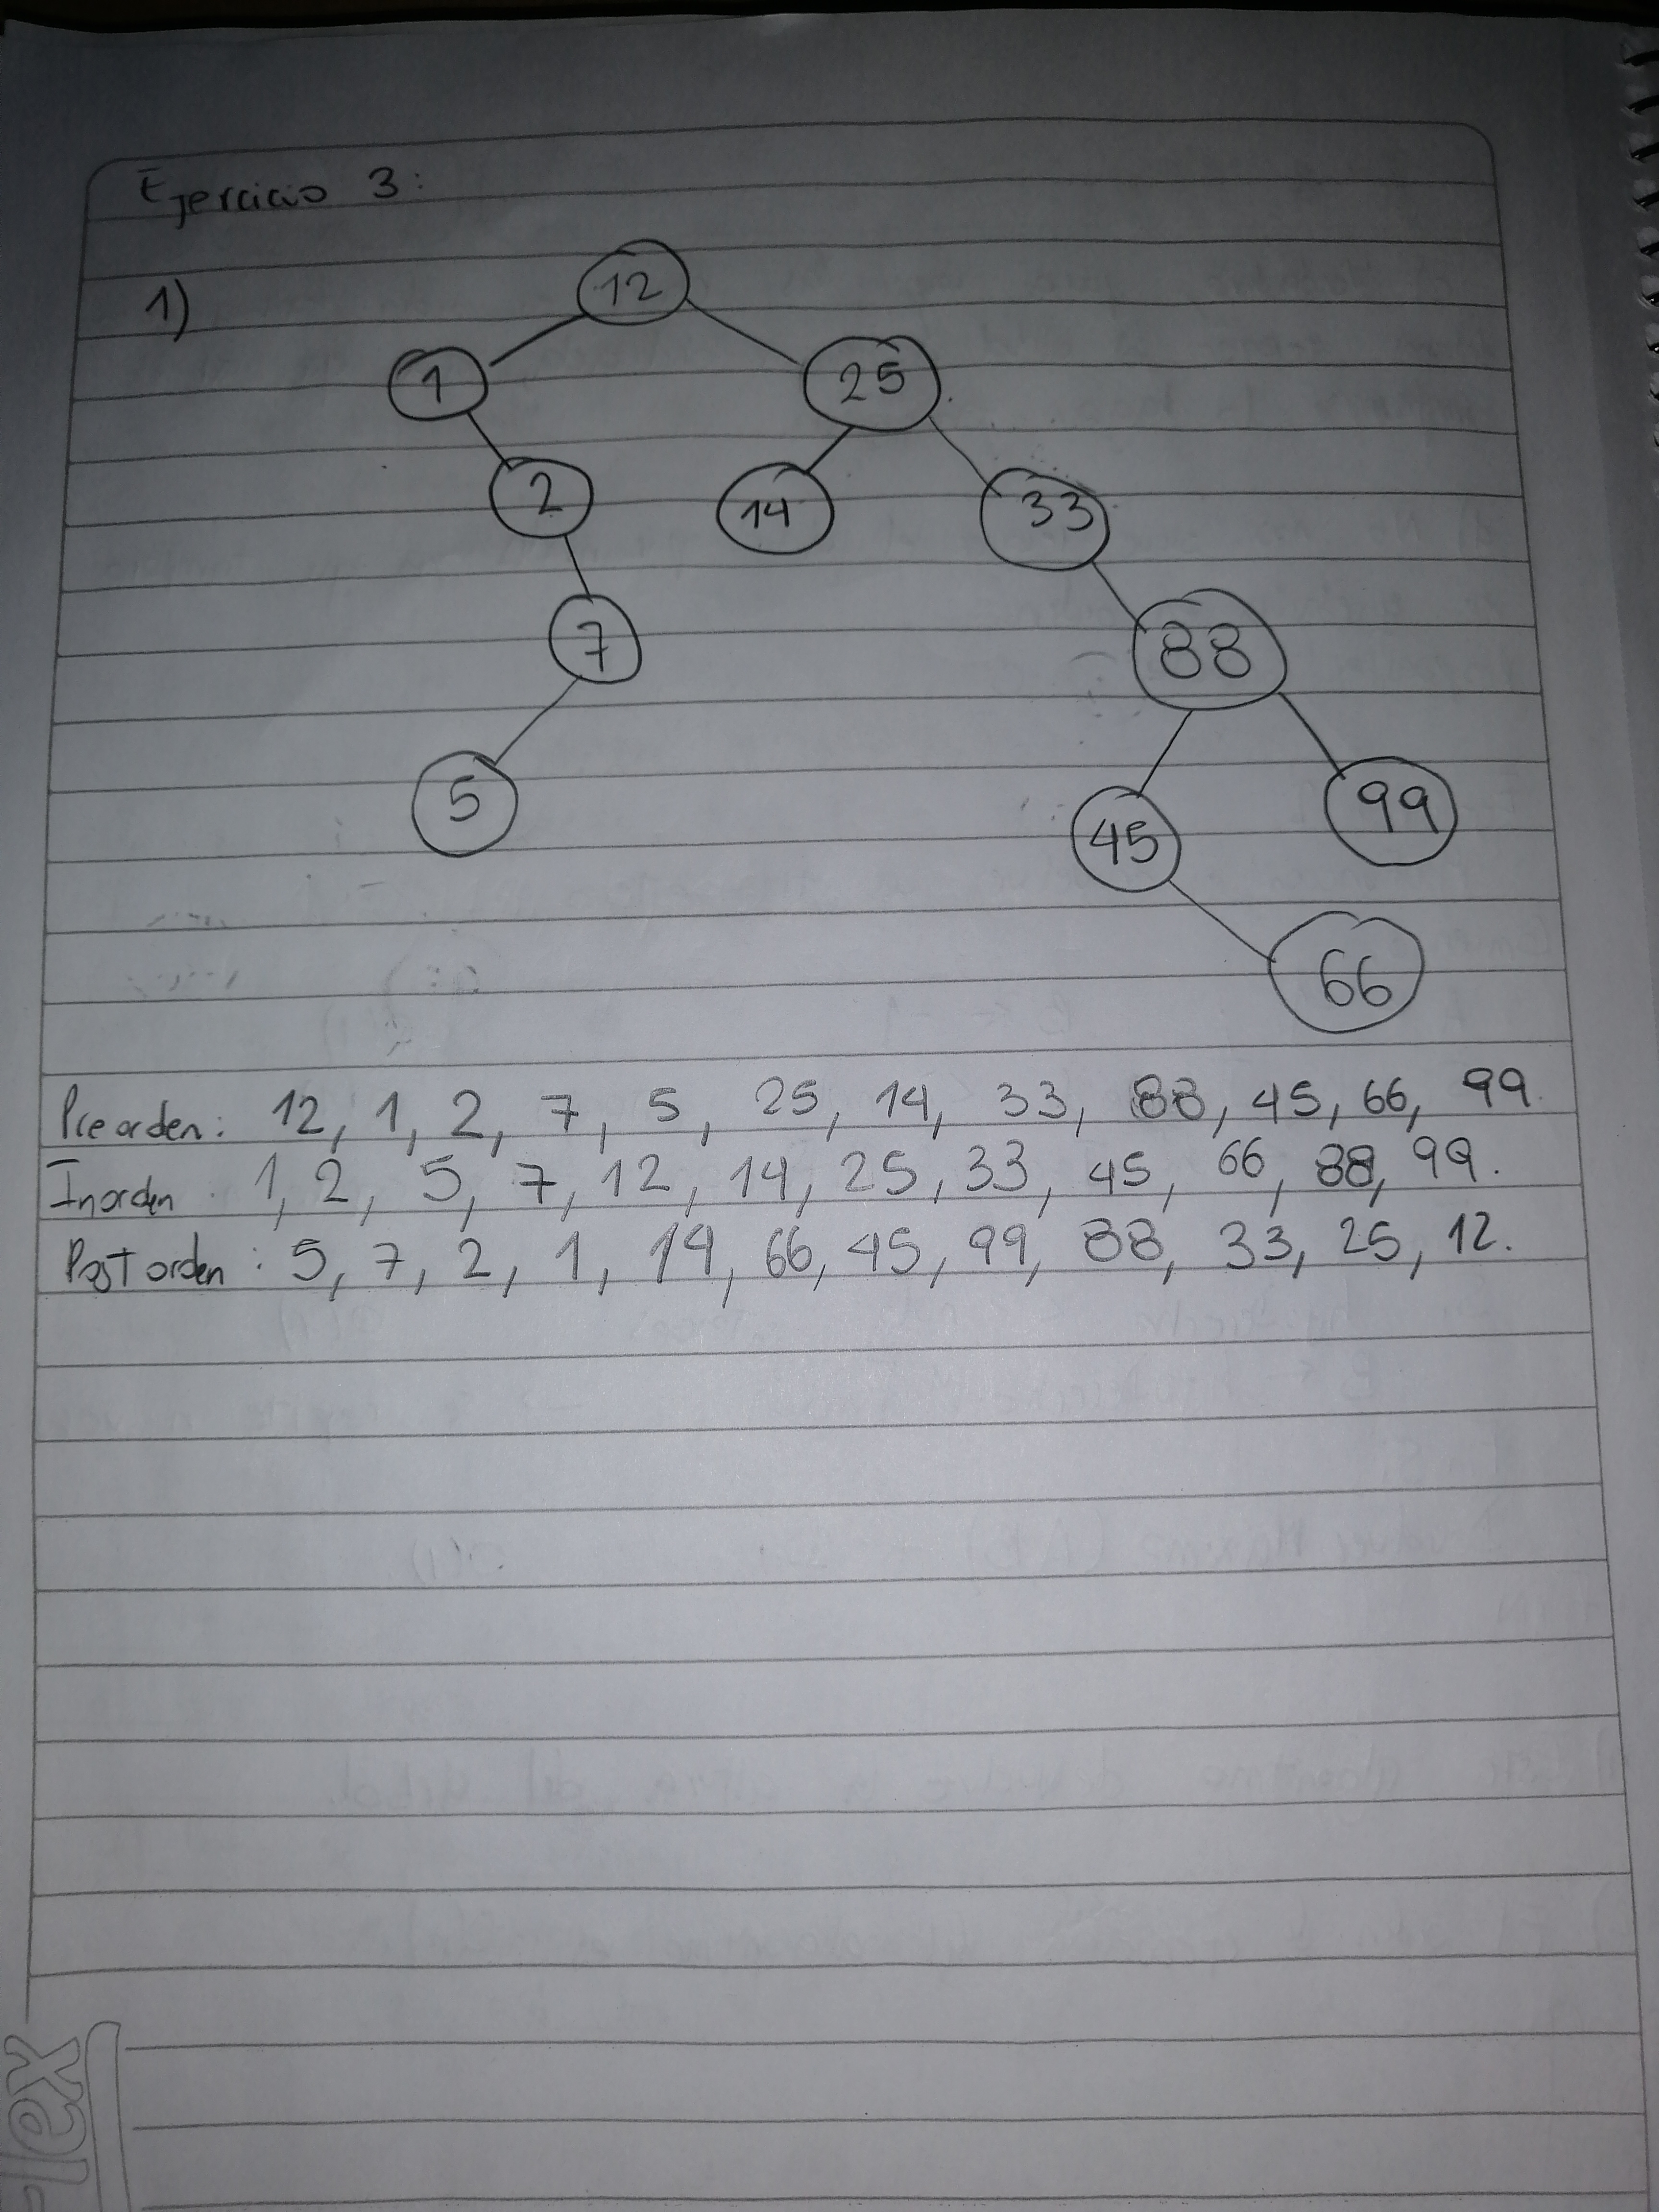 Ejercicio 3:
1)
12
1
25
2
14
33
7
88
5
45
99
66
Preorden: 12, 1, 2, 7, 5, 25, 14, 33, 88, 45, 66, 99.
Inorden: 1, 2, 5, 7, 12, 14, 25, 33, 45, 66, 88, 99.
Postorden: 5, 7, 2, 1, 14, 66, 45, 99, 88, 33, 25, 12.